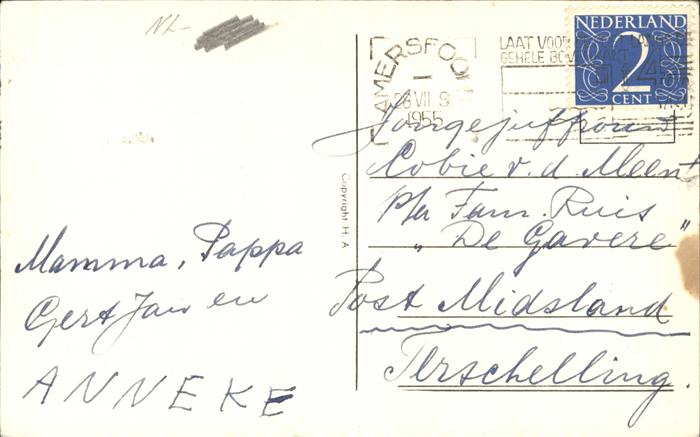 NL-
NEDERLAND
2
CENT
AMERSFOO
26 VII 9
1955
LAAT VOOR
GEHELE BOV
Jongejuffrouw
Cobie v. d. Meent
p/a Fam. Ruis
"De Gavere"
Post Midsland
Terschelling.
Copyright H. A
Mamma, Pappa
Gert Jan en
ANNEKE